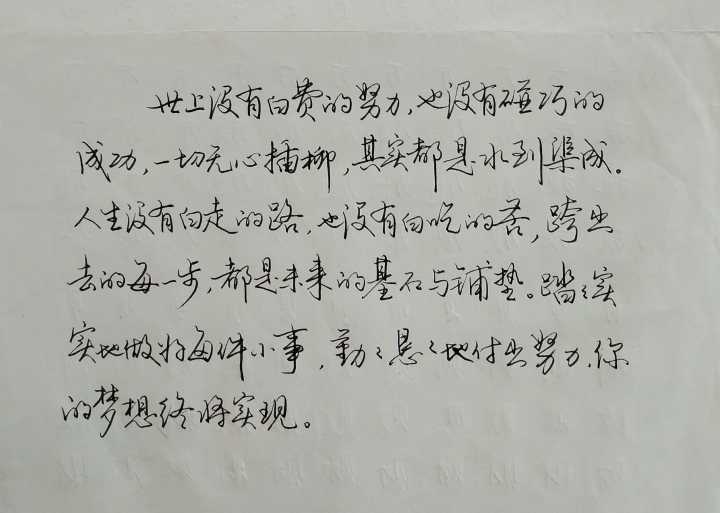 世上没有白费的努力,也没有碰巧的
成功,一切无心插柳,其实都是水到渠成。
人生没有白走的路,也没有白吃的苦,跨出
去的每一步,都是未来的基石与铺垫。踏踏实
实地做好每件小事,勤勤恳恳地付出努力,你
的梦想终将实现。